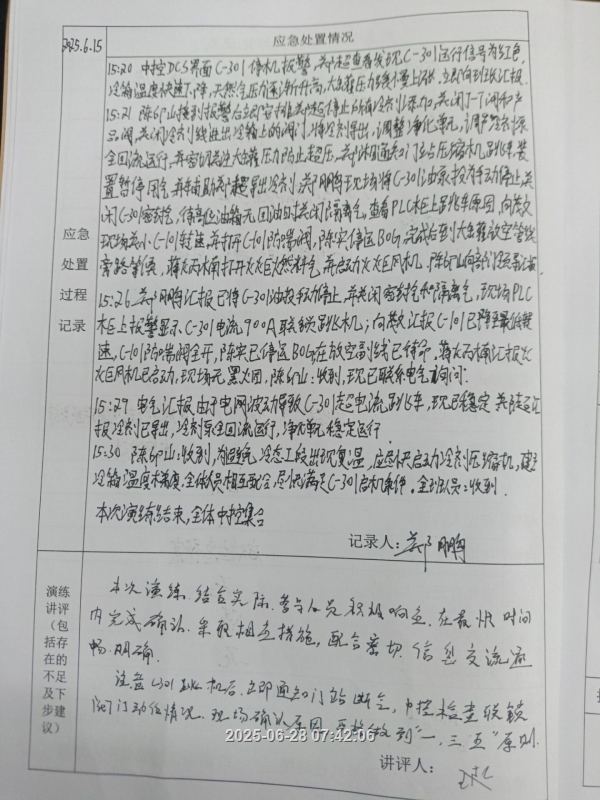 2025.6.15
应急处置情况
15:20 中控DCS界面C-301停机报警，郑超查看发现C-301运行信号为红色，
冷箱温度快速下降，天然气压力逐渐升高，大罐压力缓慢上涨，立即向班长汇报。
15:21 陈印山接到报警后立即安排郑超停止所有冷剂添加，关闭J-T阀和产
品阀，关闭冷剂线进出冷箱上的阀门，将冷剂导出，调整净化单元，调产冷剂泵
全回流运行，并密切关注大罐压力防止超压，通知门站压缩机跳车，装
置暂停用气，并辅助郑超导出冷剂，郑鹏鹏现场将C-301油泵投为手动停止，关
闭C-301密封气，待高位油箱无回油时关闭隔离气，查看PLC柜上跳车原因，向茂
现场减小C-101转速，并打开C-101防喘阀，陈实停运BOG，完成后到大罐放空管线
旁路等候，蒋丙楠打开火炬燃料气，并启动火炬风机，陈印山向部门经理汇报
应急
处置
过程
记录
15:26 郑鹏鹏汇报已将C-301油投手动停止，并关闭密封气和隔离气，现场PLC
柜上报警显示C-301电流900A联锁跳机；向茂汇报C-101已降至最低转
速，C-101防喘阀全开，陈实已停运BOG在放空副线已待命，蒋丙楠汇报火
炬风机已启动，现场无黑火团，陈印山：收到，现已联系电气询问。
15:29 电气汇报由于电网波动导致C-301超电流跳车，现已稳定，郑超汇
报冷剂已导出，冷剂泵全回流运行，净化单元稳定运行
15:30 陈印山：收到，为避免冷态工段出现复温，应尽快启动冷剂压缩机，建立
冷箱温度梯度，全体人员相互配合，尽快满足C-301启机条件。全班人员：收到。
本次演练结束，全体中控集合
记录人：郑鹏鹏
演练
讲评
（包
括存
在的
不足
及下
步建
议）
本次演练结合实际，参与人员积极响应，在最快时间
内完成确认，采取相应措施，配合密切，信息交流通
畅、明确。
注意C-301跳机后，立即通知门站断气，中控检查联锁
阀门动作情况，现场确认原因，严格做到“一，三，五”原则。
2025-06-28 07:42:06
讲评人：